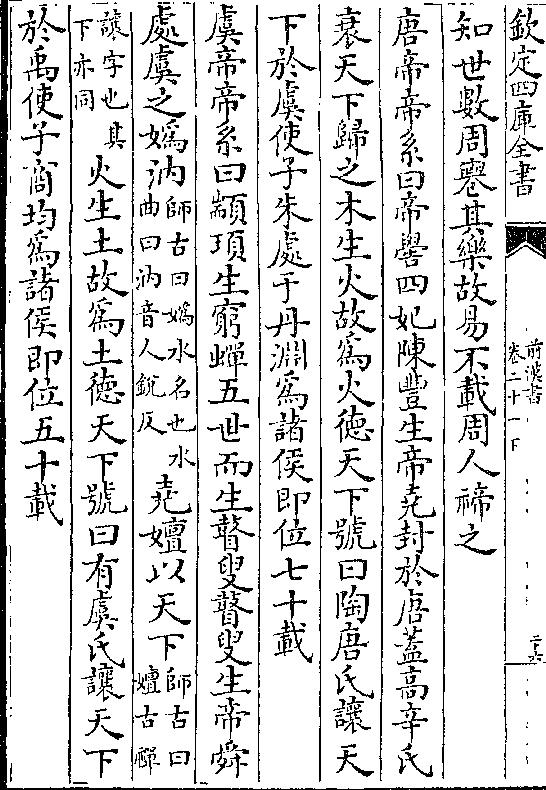 欽定四庫全書
前漢書
卷二十一下
二十六
知世數周𨙸其樂故易不載周人禘之
唐帝帝系曰帝嚳四妃陳豐生帝堯封於唐蓋高辛氏
衰天下歸之木生火故為火德天下號曰陶唐氏讓天
下於虞使子朱處于丹淵為諸侯即位七十載
虞帝帝系曰顓頊生窮蟬五世而生瞽叟瞽叟生帝舜
處虞之媯汭師古曰媯水名也水曲曰汭音人銳反堯嬗以天下師古曰嬗古禪
讓字也其下亦同火生土故為土德天下號曰有虞氏讓天下
於禹使子商均為諸侯即位五十載